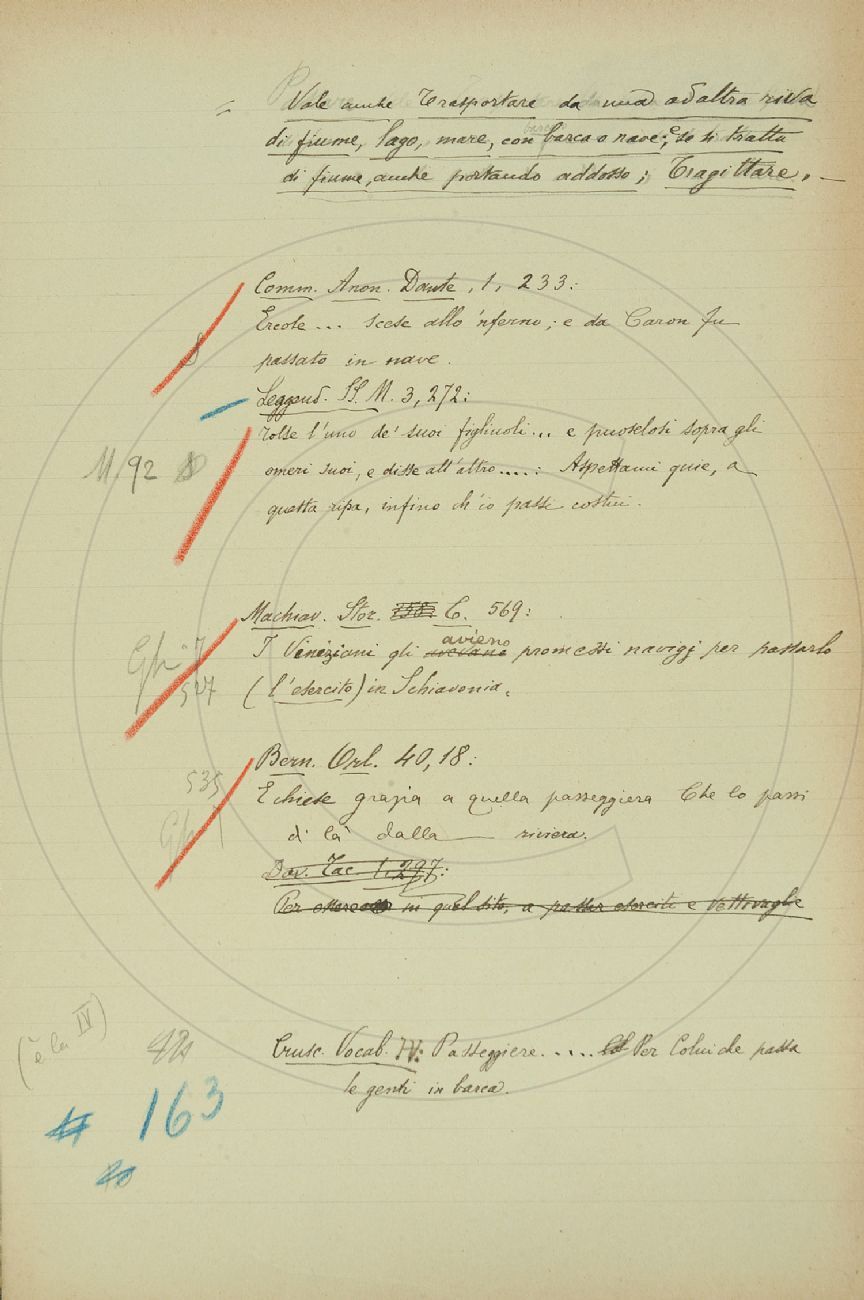 = Vale anche Trasportare da una ad altra riva
di fiume, lago, mare, con barca o nave; e se si tratta
di fiume, anche portando addosso; Tragittare. —
Comm. Anon. Dante, 1, 233:
Ercole... scese allo 'nferno; e da Caron fu
passato in nave.
Leggend. SS. M. 3, 272:
Tolse l'uno de' suoi figliuoli... e puoselosi sopra gli
M. 92
omeri suoi, e disse all'altro....: Aspettami quie, a
questa ripa, infino ch'io passi costui.
Machiav. Stor. 758. C. 569:
avieno
I Veneziani gli promessi navigj per passarlo
527
(l'esercito) in Schiavonia.
Bern. Orl. 40, 18:
535
E chiese grazia a quella passeggiera Che lo passi
di là dalla riviera.
Dav. Tac. 1, 297:
Per essere in quel sito, a passar eserciti e vettovaglie
(è la IV)
Crusc. Vocab. IV: Passeggiere..... Per Colui che passa
le genti in barca.
163